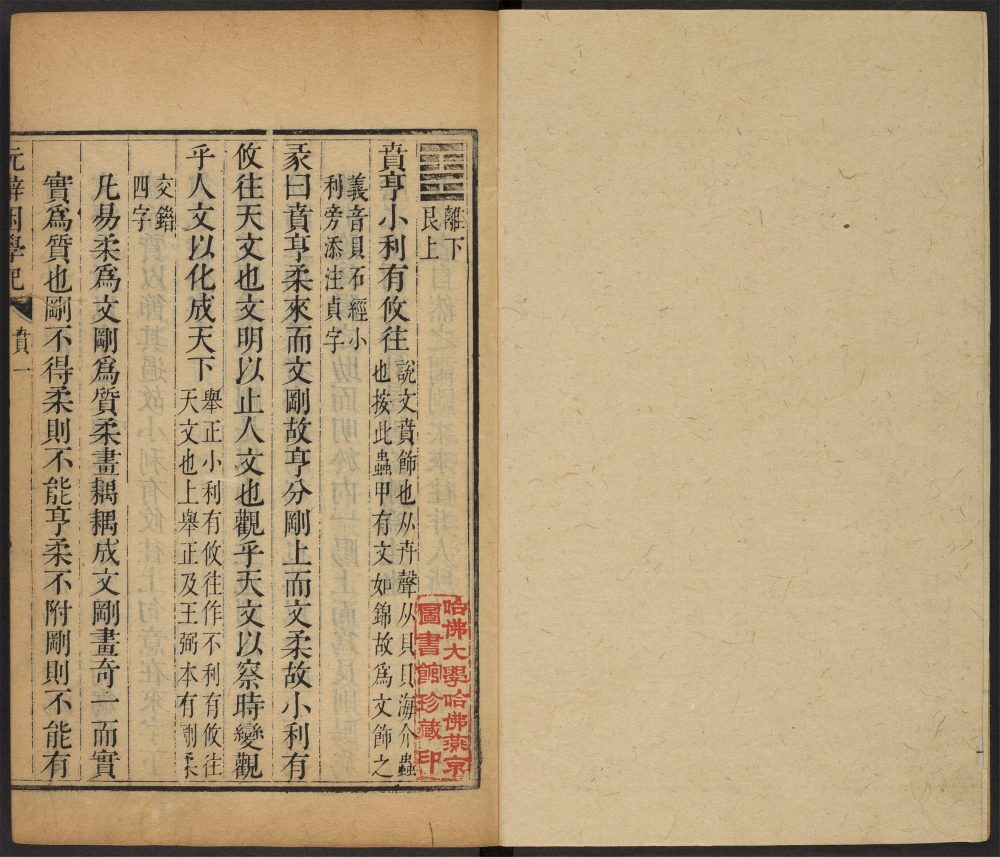 離下
艮上
賁亨小利有攸往
說文賁飾也从卉聲从貝貝海介蟲
也按此蟲甲有文如錦故爲文飾之
義音貝石經小
利旁添注貞字
彖曰賁亨柔來而文剛故亨分剛上而文柔故小利有
攸往天文也文明以止人文也觀乎天文以察時變觀
乎人文以化成天下
舉正小利有攸往作不利有攸往
天文也上舉正及王弼本有剛柔
交錯
四字
凡易柔爲文剛爲質柔畫耦耦成文剛畫奇一而實
實爲質也剛不得柔則不能亨柔不附剛則不能有
元辭因學記
賁一
哈佛大學哈佛燕京
圖書館珍藏印